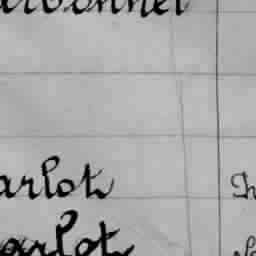 arbonnel
arlot
arlot